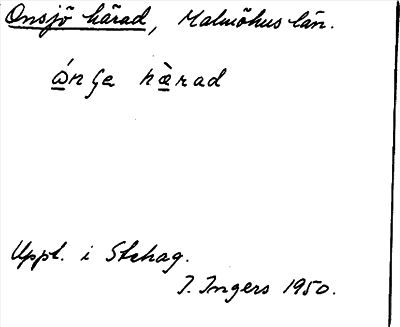 Onsjö härad, Malmöhus län.
ώ̲nʃe hæ̲̀rad
Uppt. i Stehag.
I. Ingers 1950.